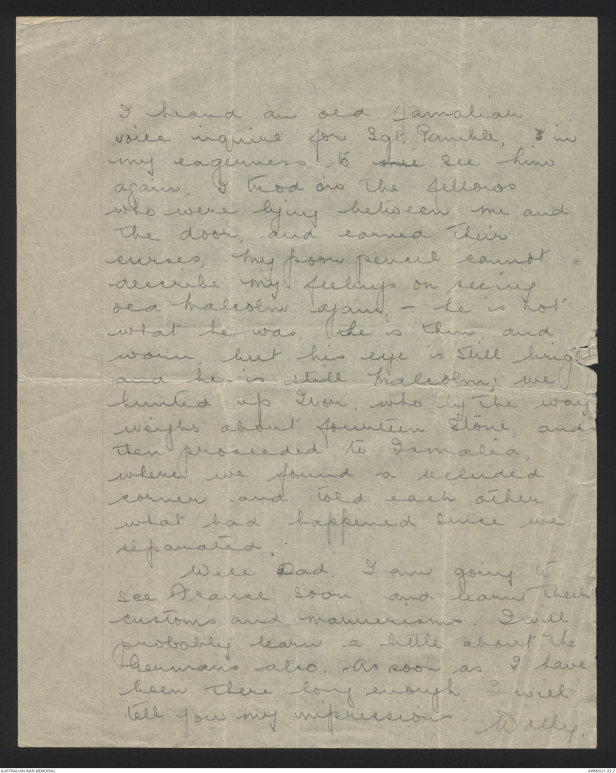 I heard an old familiar
voice inquire for Sgt. Gamble, & in
my eagerness to see him
again, I trod on the fellows
who were lying between me and
the door, and earned their
curses, My poor pencil cannot
describe my feelings on seeing
old Malcolm again, - he is not
what he was, he is thin, and
worn, but his eye is still brig
and he is still Malcolm; we
hunted up Ivon, who by the way
weighs about fourteen Stone, and
then proceeded to Ismalia,
where we found a secluded
corner and told each other
what had happened since we
separated.
Well Dad. I am going to
see France soon, and learn their
customs and mannerisms. I will
probably learn a little about the
Germans also. As soon as I have
been there long enough, I will
tell you my impressions
Wally.
AUSTRALIAN WAR MEMORIAL